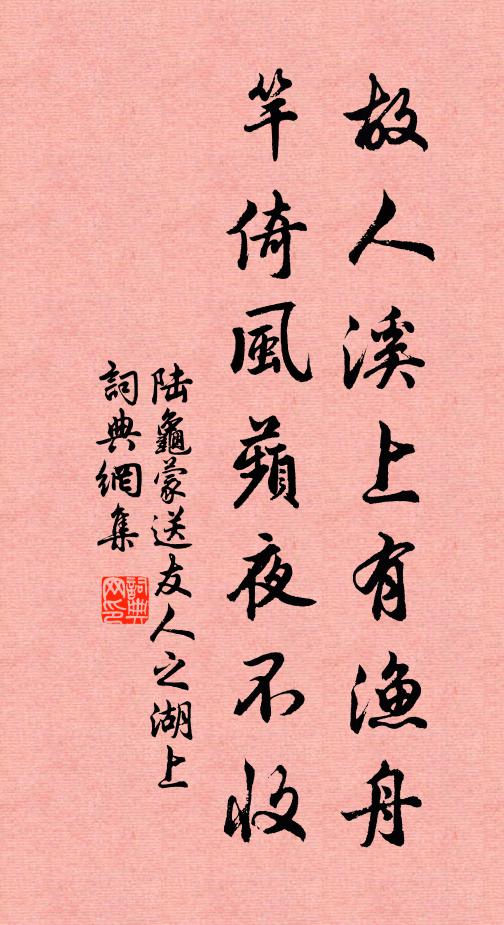 故人溪上有漁舟
竿倚風蘋夜不收
陆龜蒙送友人之湖上
詞典網集
詞典網印